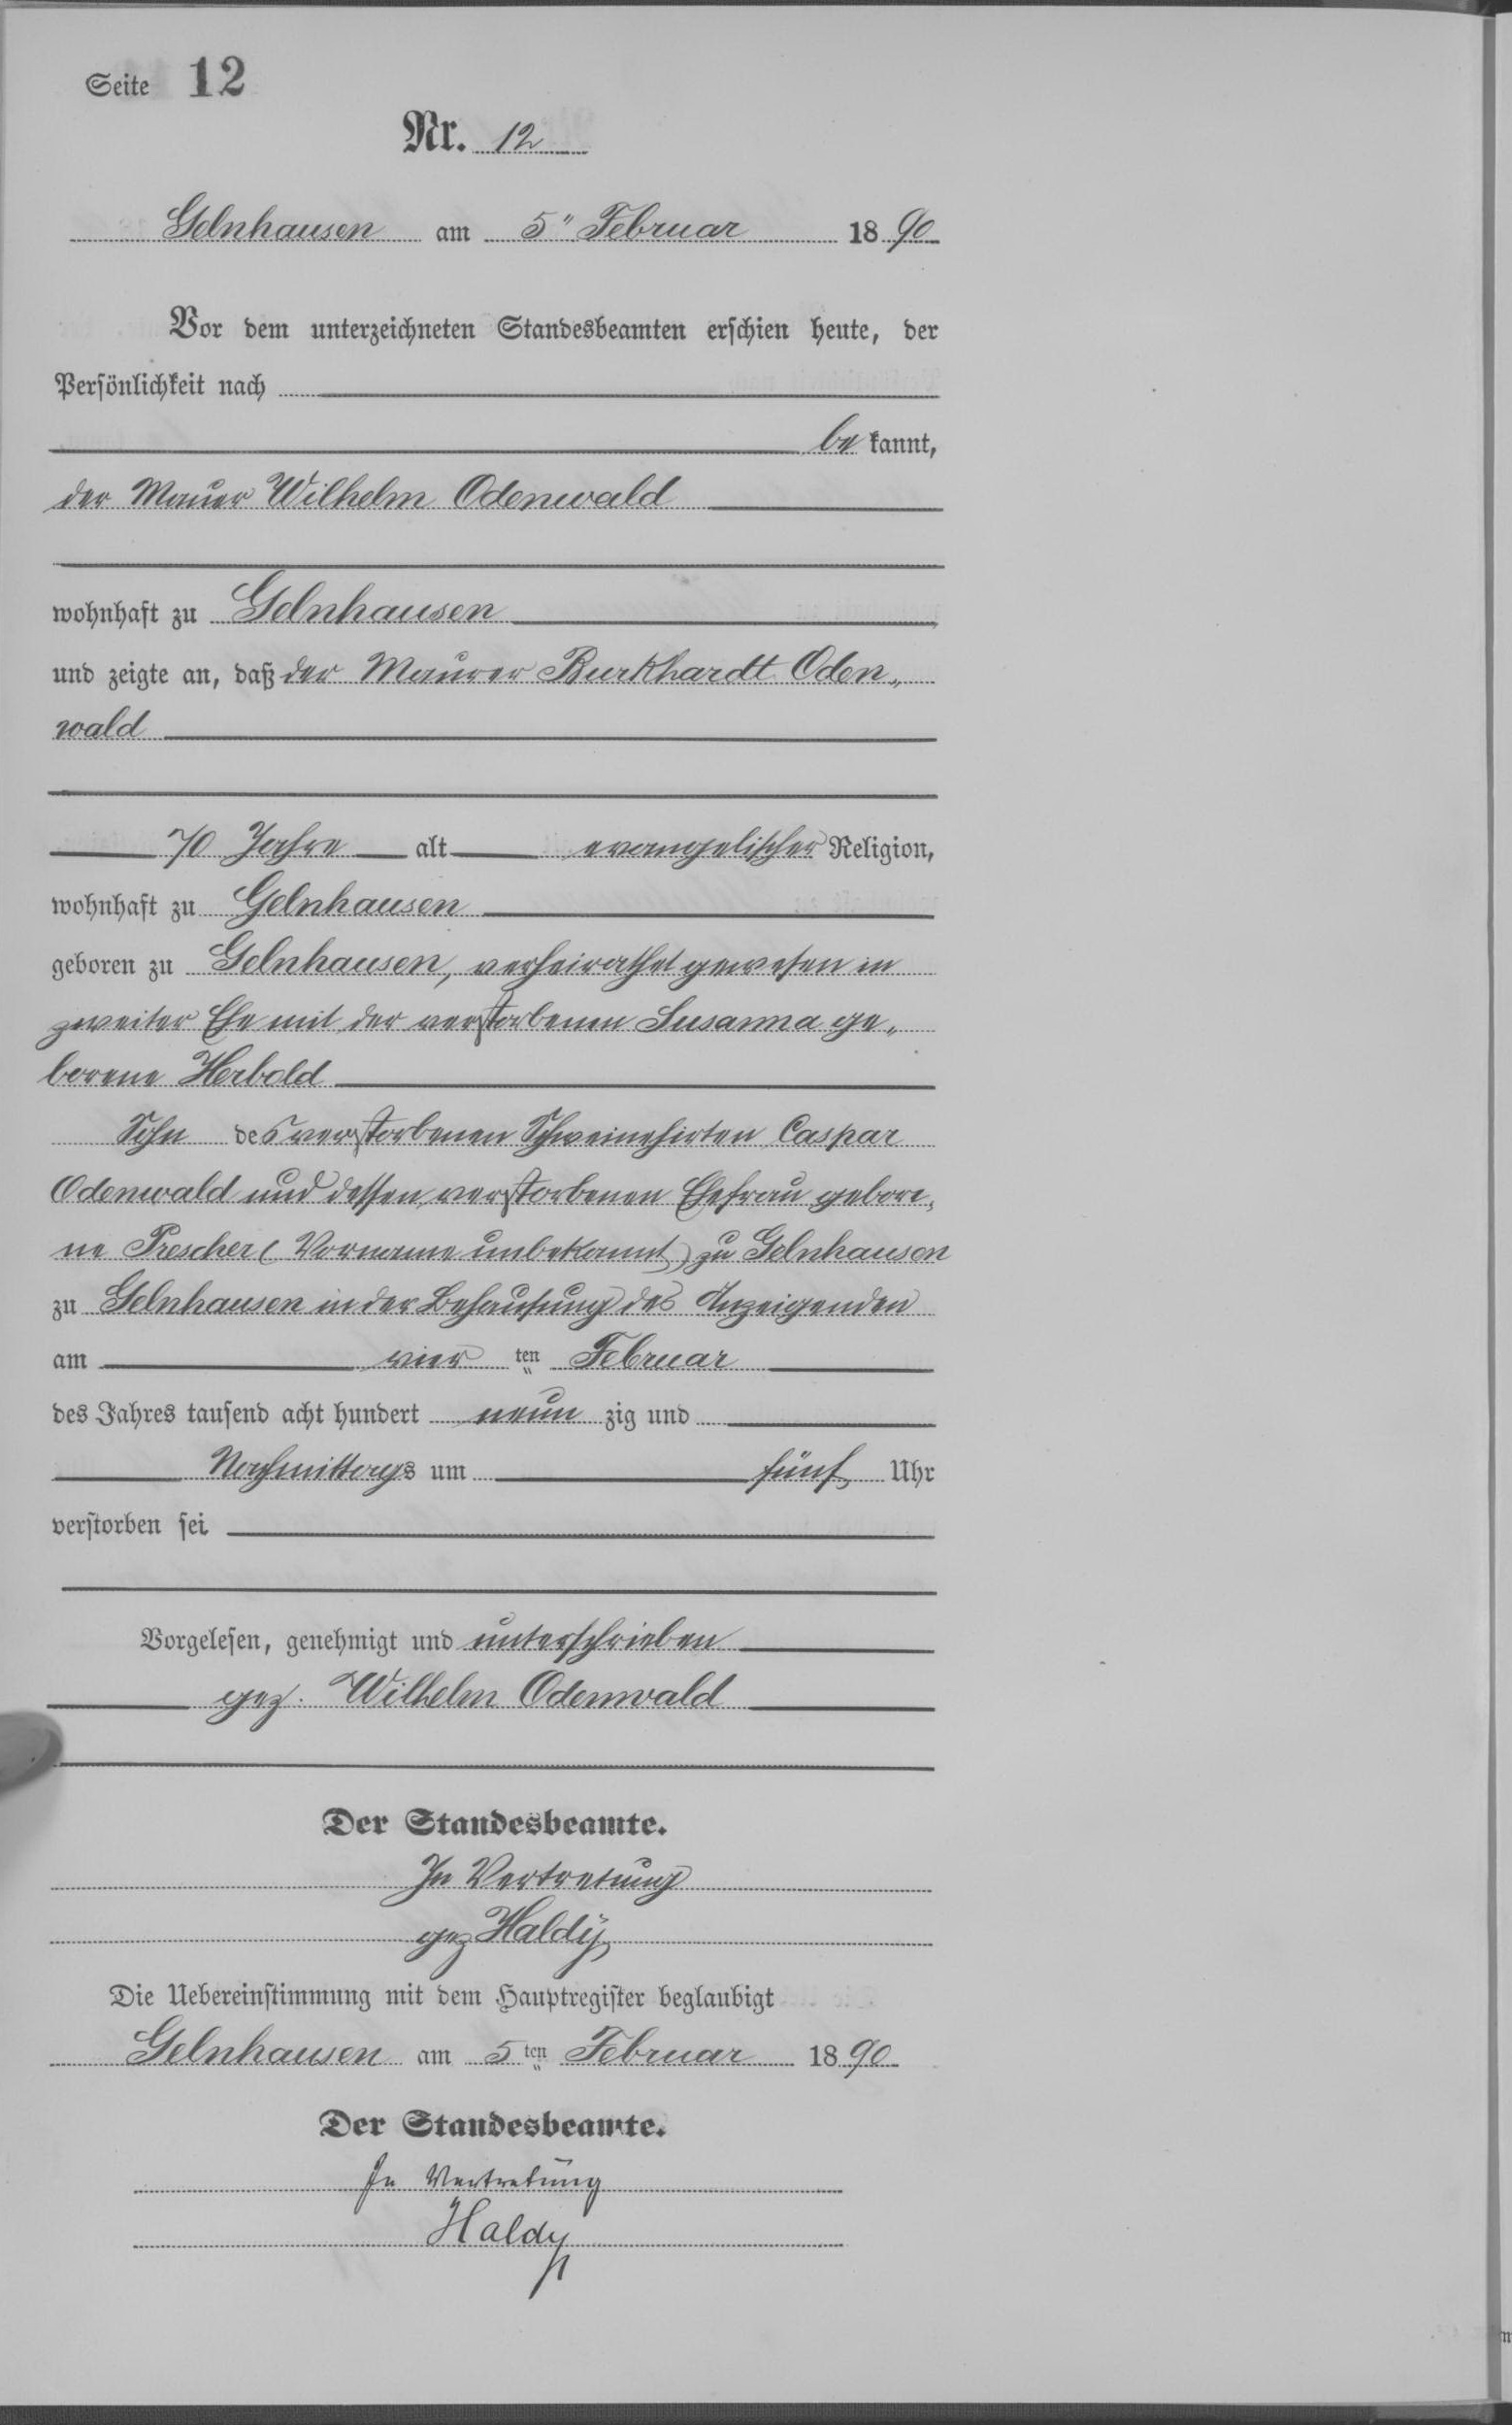 Seite 12
Nr. 12
Gelnhausen am 5" Februar 1890
Vor dem unterzeichneten Standesbeamten erschien heute, der
Persönlichkeit nach
bekannt,
der Mauer Wilhelm Odenwald
wohnhaft zu Gelnhausen
und zeigte an, daß der Maurer Burkhardt Oden„
wald
70 Jahre alt evangelischer Religion,
wohnhaft zu Gelnhausen
geboren zu Gelnhausen, verheirathet gewesen in
zweiter Ehe mit der verstorbenen Susanna ge„
borene Herbold
Sohn des verstorbenen Schweinehirten Caspar
Odenwald und dessen verstorbenen Ehefrau gebore„
ne Prescher (Vorname unbekannt) zu Gelnhausen
zu Gelnhausen in der Behausung des Anzeigenden
am vier ten Februar
des Jahres tausend acht hundert neunzig und
Nachmittags um fünf Uhr
verstorben sei
Vorgelesen, genehmigt und unterschrieben
gez. Wilhelm Odenwald
Der Standesbeamte.
In Vertretung
gez Haldy
Die Uebereinstimmung mit dem Hauptregister beglaubigt
Gelnhausen am 5ten Februar 1890
Der Standesbeamte.
In Vertretung
Haldy